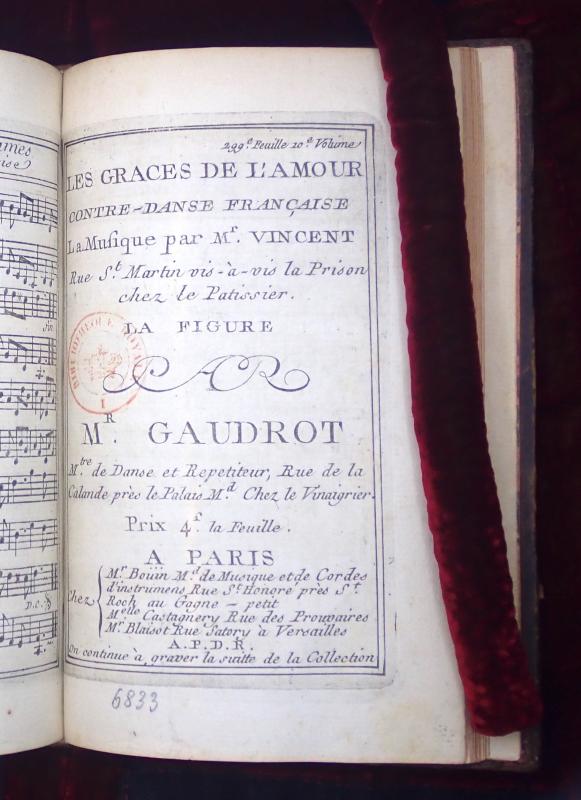 mes
ise
Fin
D.C.
299.e Feuille 10.e Volume
LES GRACES DE L'AMOUR
CONTRE-DANSE FRANÇAISE
La Musique par Mr. VINCENT
Rue St. Martin vis-à-vis la Prison
chez le Patissier.
LA FIGURE
PAR
MR. GAUDROT
M.tre de Danse et Repetiteur, Rue de la
Calande près le Palais M.d Chez le Vinaigrier.
Prix 4.f la Feuille.
A PARIS
Chez
Mr. Boüin M.d de Musique et de Cordes
d'instrumens Rue St. Honoré près St.
Roch au Gogne - petit
Melle Castagnery Rue des Prouvaires
Mr. Blaisot Rue Satory à Versailles
A.P.D.R.
On continue à graver la suitte de la Collection
BIBLIOTHEQUE ROYALE
I
6833